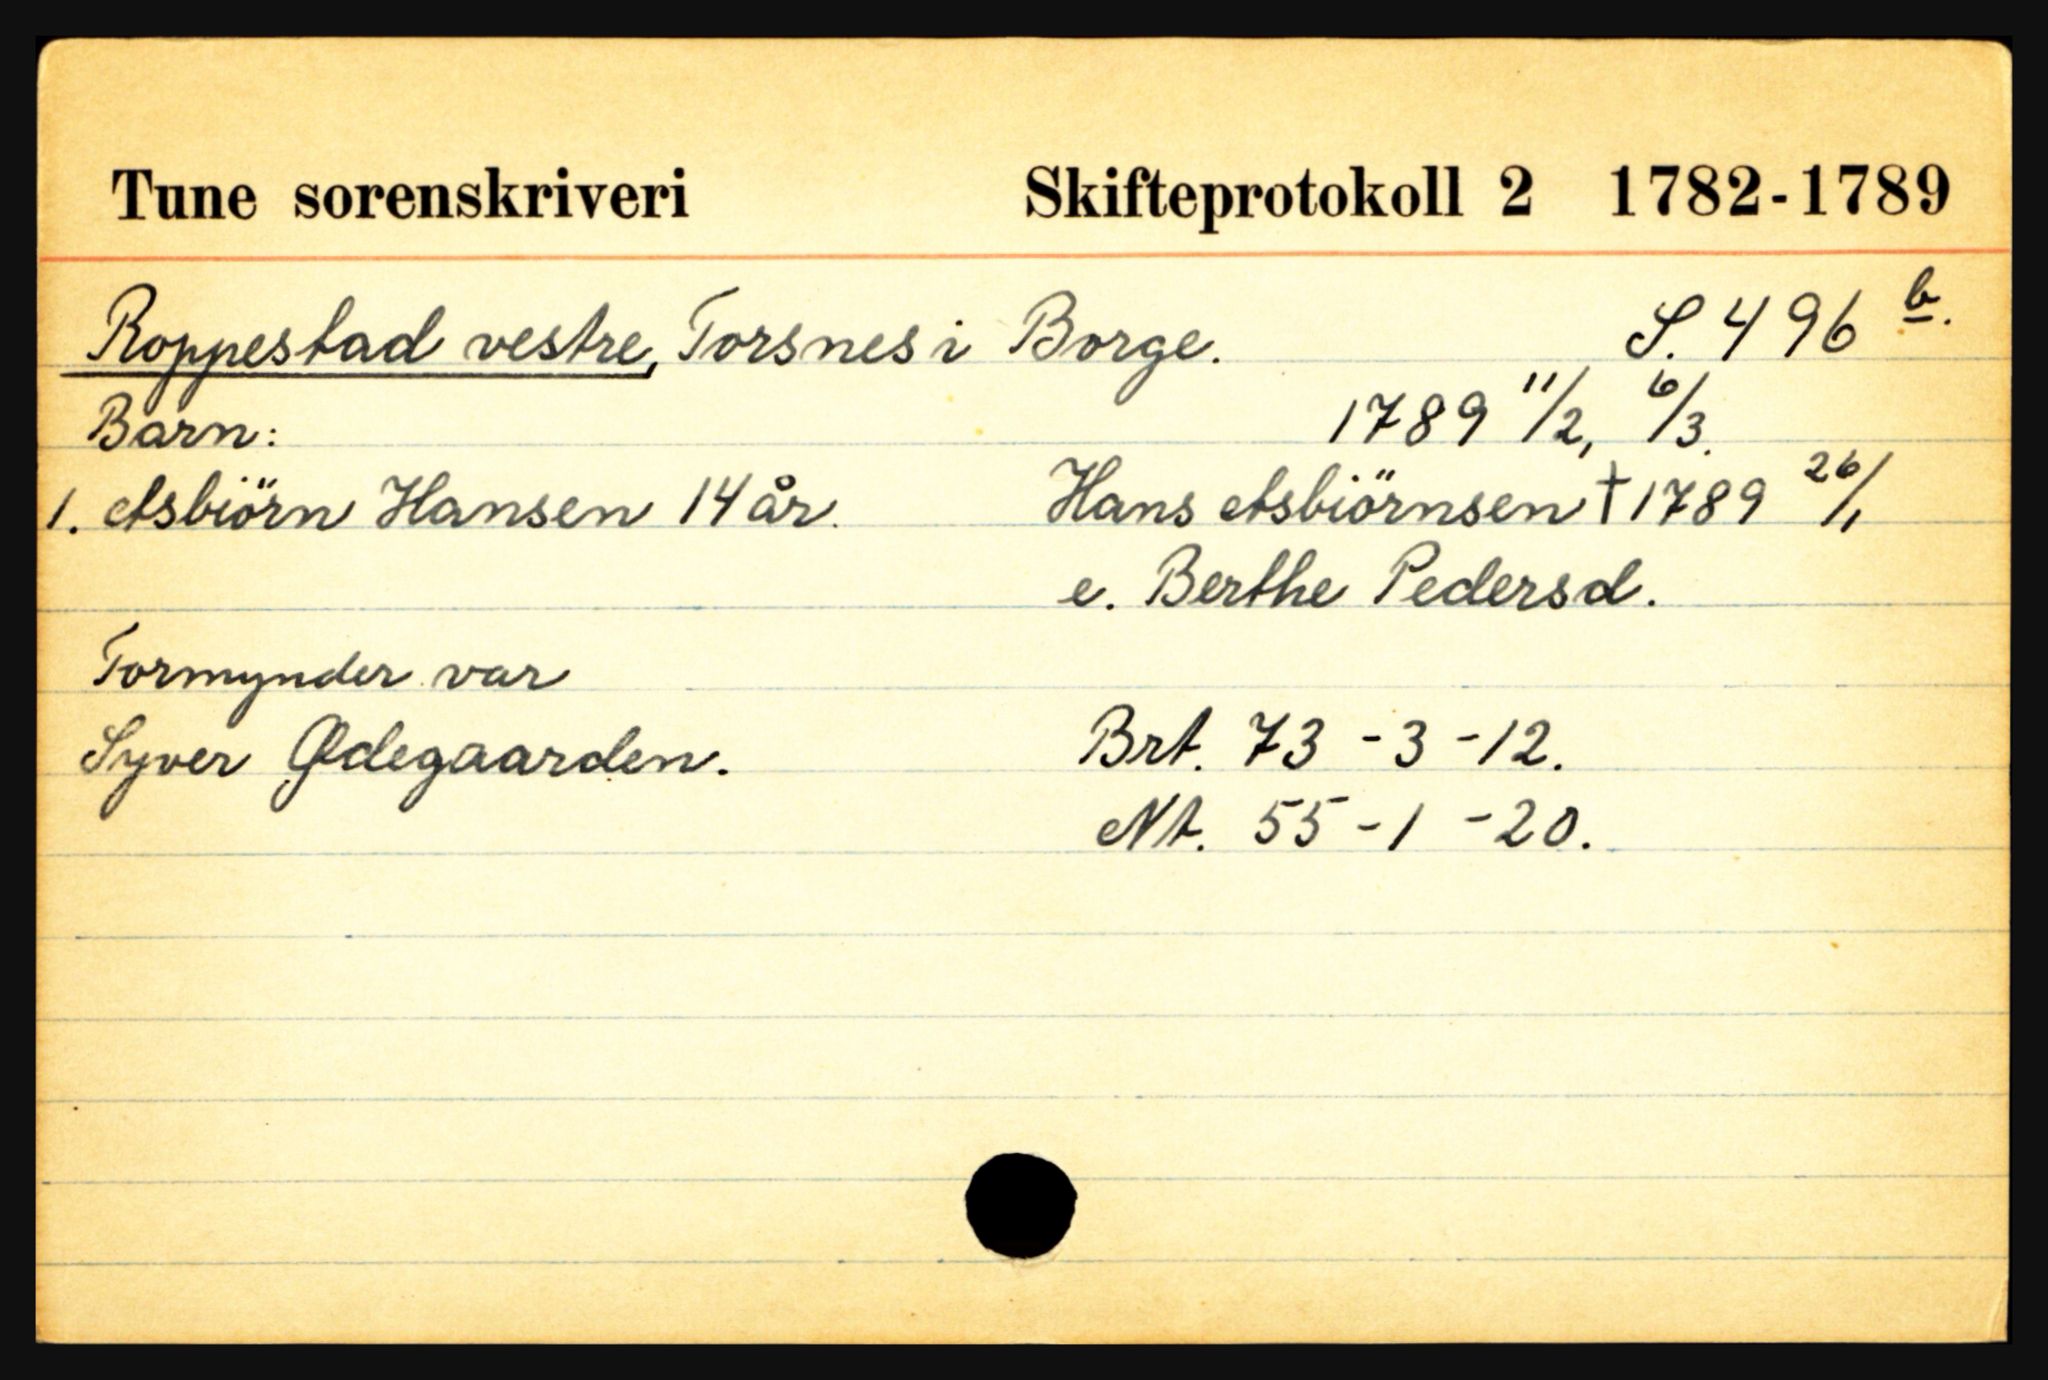 Tune sorenskriveri Skifteprotokoll 2 1782-1789
Roppestad vestre, Torsnes i Borge. S. 496 b.
Barn: 1789 11/2, 6/3.
1. Asbiörn Hansen 14 år. Hans Asbiörnsen † 1789 26/1
e. Berthe Pedersd.
Formynder var
Syver Ødegaarden. Brt. 73-3-12.
Nt. 55-1-20.